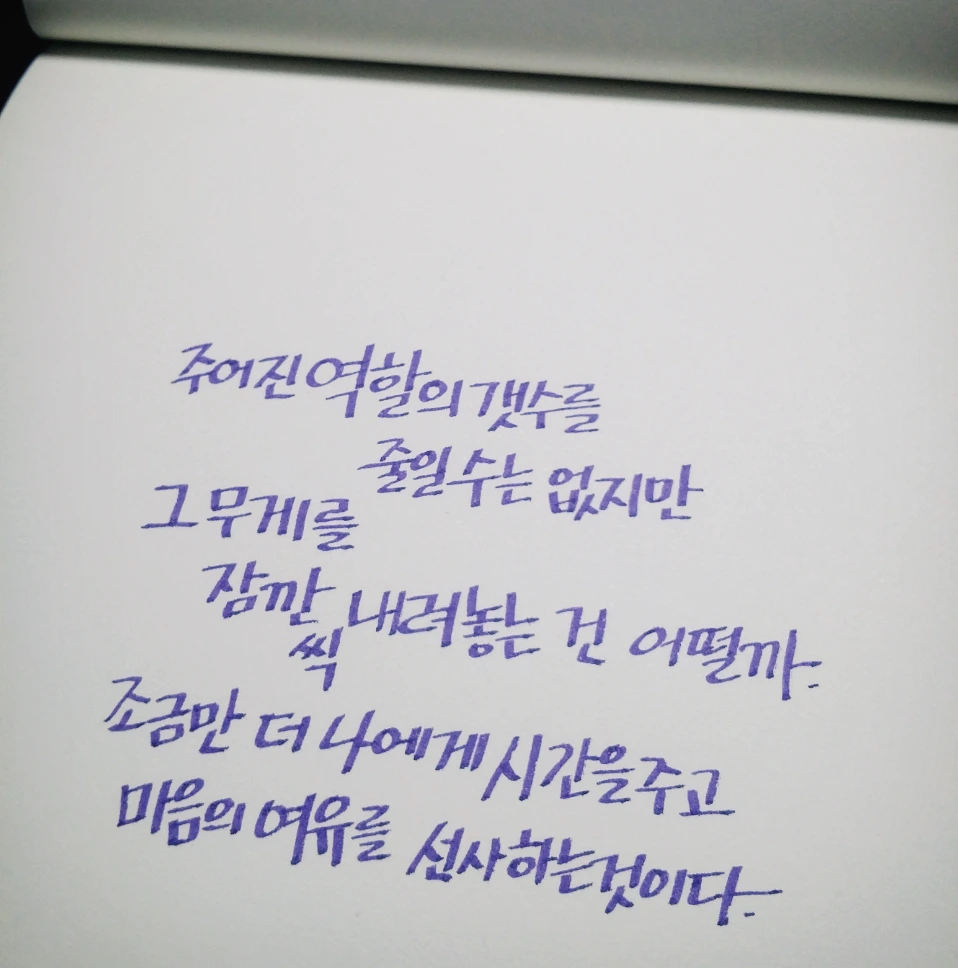 주어진 역할의 갯수를
줄일 수는 없지만
그 무게를
잠깐씩 내려놓는 건 어떨까.
조금만 더 나에게 시간을 주고
마음의 여유를 선사하는것이다.